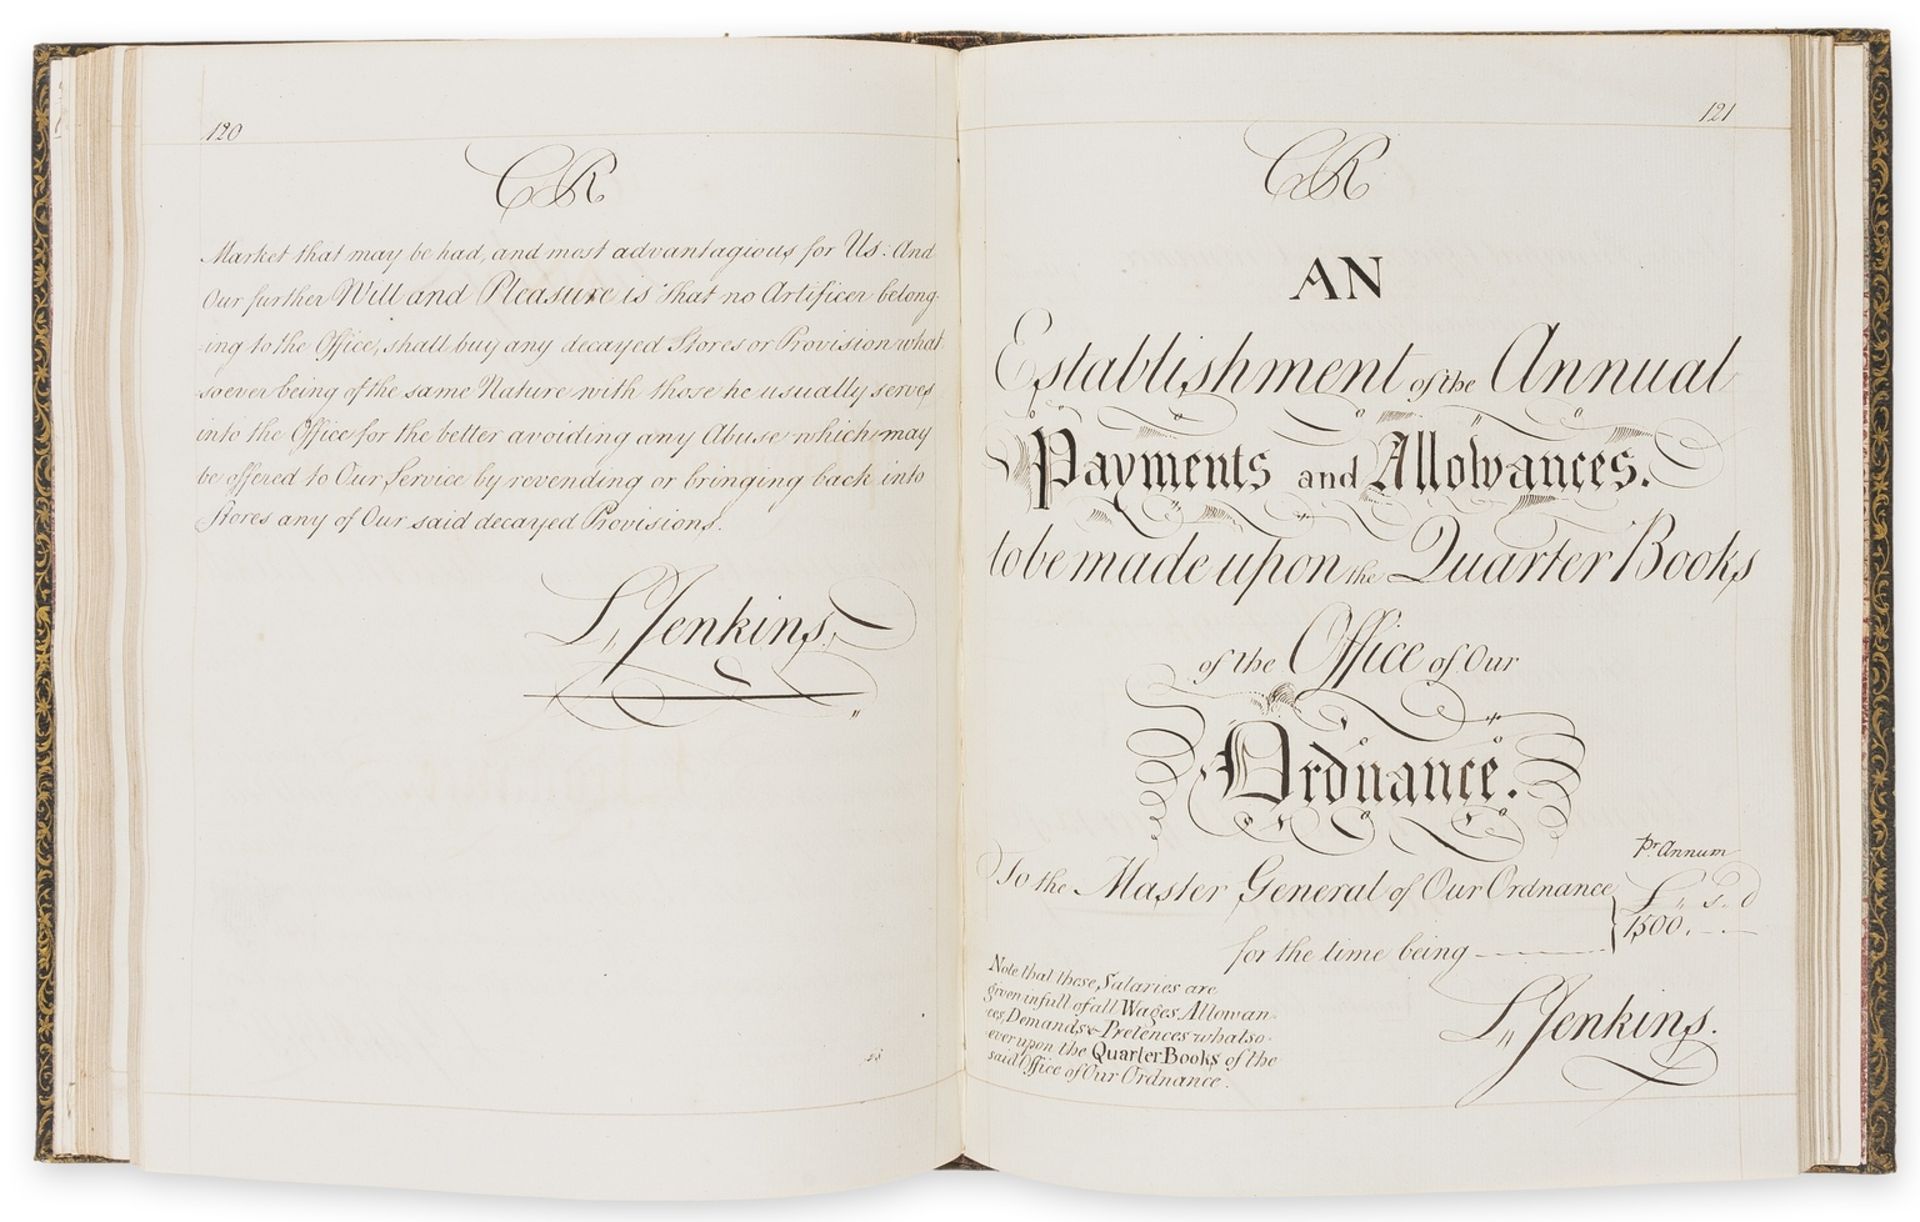 120
CR
Market that may be had, and most advantagious for Us: And
Our further Will and Pleasure is That no Artificer belong-
-ing to the Office, shall buy any decayed Stores or Provision what
soever being of the same Nature with those he usually serves
into the Office for the better avoiding any Abuse which may
be offered to Our Service by revending or bringing back into
Stores any of Our said decayed Provisions.
L,, Jenkins.
121
CR
AN
Establishment of the Annual
Payments and Allowances.
to be made upon the Quarter Books
of the Office of Our
Ordnance.
Pr. Annum
To the Master General of Our Ordnance
£ ,, s. d
for the time being
1500. - -
Note that these Salaries are
given in full of all Wages, Allowan-
ces, Demands & Pretences whatso-
ever upon the Quarter Books of the
said Office of Our Ordnance.
L,, Jenkins.